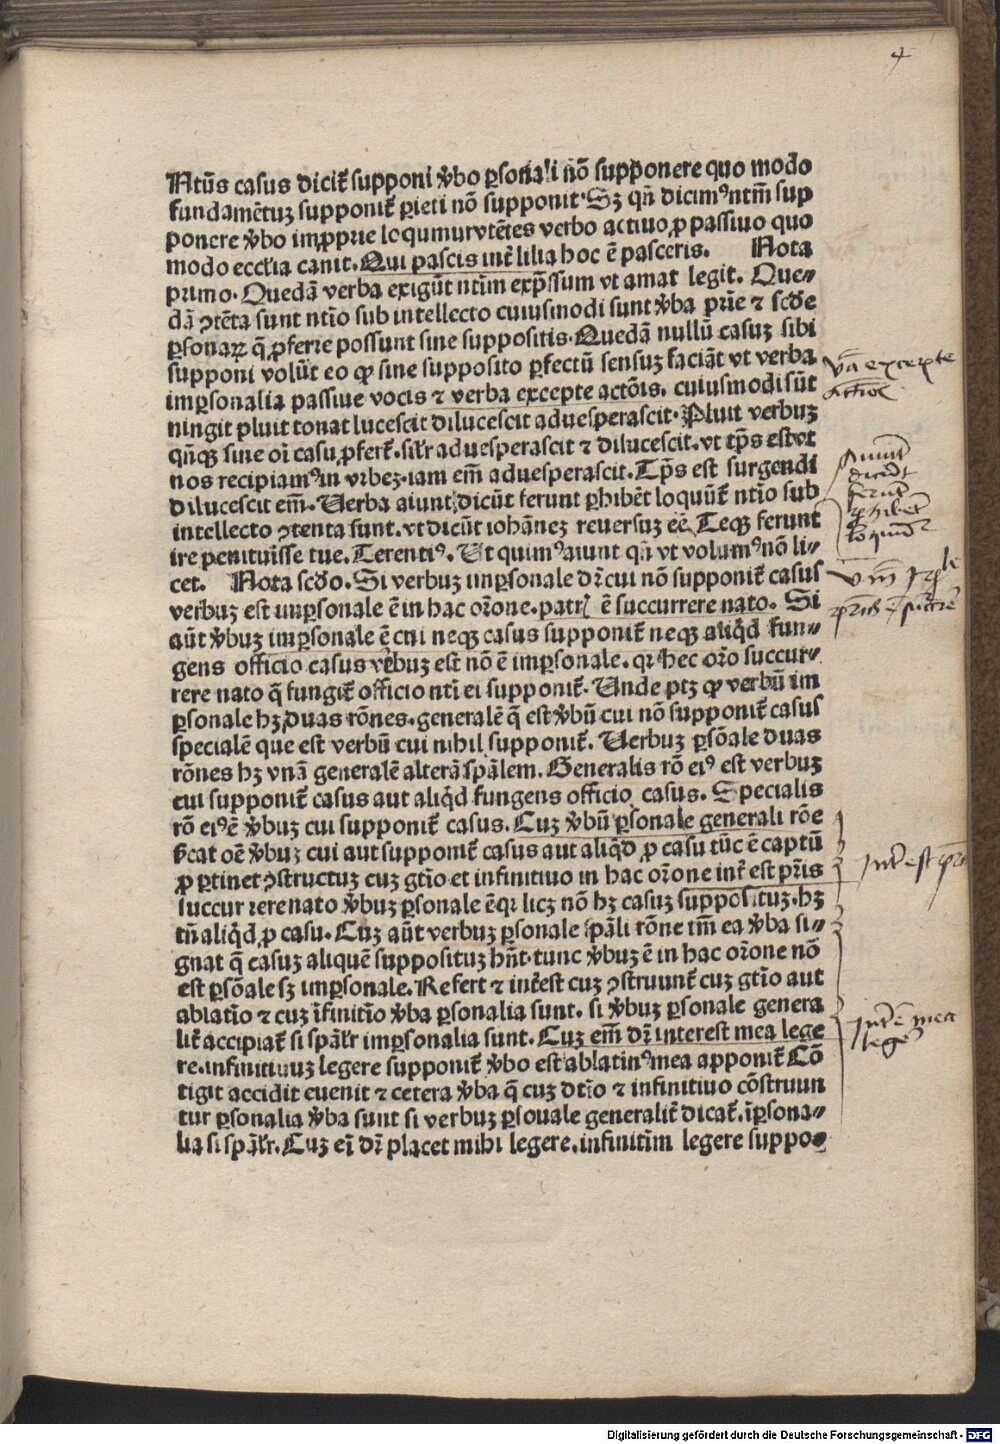 4
Ntūs casus dicit̄ supponi v̄bo ꝑsonali nō supponere quo modo
fundamētuꝫ supponit̄ ꝑieti nō supponit. Sꝫ qn̄ dicimꝰ ntm̄ sup
ponere v̄bo imꝓprie loqumur vtētes verbo actiuo ꝓ passiuo quo
modo eccl'ia canit. Qui pascis int̄ lilia hoc ē pasceris. Nota
primo. Quedā verba exigūt ntīm exp̄ssum vt amat legit. Que⸗
dā ꝯtēta sunt ntīo sub intellecto cuiusmodi sunt v̄ba prīe ⁊ scd̄e
ꝑsonaꝝ q̄ ꝓferre possunt sine suppositis. Quedā nullū casuꝫ sibi
supponi volūt eo ꝙ sine supposito ꝑfectū sensuꝫ faciāt vt verba
imꝑsonalia passiue vocis ⁊ verba excepte actōis. cuiusmodi sūt
ningit pluit tonat lucescit dilucescit aduesperascit. Pluit verbuꝫ
qn̄qꝫ sine oī casu ꝓfert̄. sil'r aduesperascit ⁊ dilucescit. vt tp̄s est vt
nos recipiamꝰ in vrbeꝫ. iam em̄ aduesperascit. Tp̄s est surgendi
dilucescit em̄. Uerba aiunt dicūt ferunt ꝑhibēt loquūt̄ ntīo sub
intellecto ꝯtenta sunt. vt dicūt iohāneꝫ reuersuꝫ eē. Teqꝫ ferunt
ire penituisse tue. Terentiꝰ. Ut quimꝰ aiunt qn̄ vt volumꝰ nō li⸗
cet. Nota scd̄o. Si verbuꝫ imꝑsonale dr̄ cui nō supponit̄ casus
verbuꝫ est imꝑsonale ē in hac orōne. patrꝭ ē succurrere nato. Si
aūt v̄buꝫ imꝑsonale ē cui neqꝫ casus supponit̄ neqꝫ aliqd̄ fun⸗
gens officio casus v̄ebuꝫ est nō ē imꝑsonale. qꝛ hec orō succur⸗
rere nato q̄ fungit̄ officio ntī ei supponit̄. Unde ptꝫ ꝙ verbū im
ꝑsonale hꝫ duas rōnes. generalē q̄ est v̄bū cui nō supponit̄ casus
specialē que est verbū cui nihil supponit̄. Uerbuꝫ ꝑsōale duas
rōnes hꝫ vnā generalē alterā spālem. Generalis rō eiꝰ est verbuꝫ
cui supponit̄ casus aut aliqd̄ fungens officio casus. Specialis
rō eiꝰ ē v̄buꝫ cui supponit̄ casus. Cuꝫ v̄bū ꝑsonale generali rōe
d̄cat oē v̄buꝫ cui aut supponit̄ casus aut aliqd̄ ꝓ casu tūc ē captū
ꝓ ꝑtinet ꝯstructuꝫ cuꝫ gtīo et infinitiuo in hac orōne int̄ est pr̄is
succurrere nato v̄buꝫ ꝑsonale ē qꝛ licꝫ nō hꝫ casuꝫ supposituꝫ. hꝫ
tn̄ aliqd̄ ꝓ casu. Cuꝫ aūt verbuꝫ ꝑsonale spāli rōne tm̄ ea v̄ba si⸗
gnat q̄ casuꝫ aliquē suppositus hn̄t. tunc v̄buꝫ ē in hac orōne nō
est ꝑsōale sꝫ imꝑsonale. Refert ⁊ int̄est cuꝫ ꝯstruunt̄ cuꝫ gtīo aut
ablatīo ⁊ cuꝫ īfinitīo v̄ba ꝑsonalia sunt. si v̄buꝫ ꝑsonale genera
lit̄ accipiat̄ si spāl'r imꝑsonalia sunt. Cuꝫ em̄ dr̄ interest mea lege
re. infinitiuuꝫ legere supponit̄ v̄bo est ablatinꝰ mea apponit̄ Cō
tigit accidit euenit ⁊ cetera v̄ba q̄ cuꝫ dtīo ⁊ infinitiuo cōstruun
tur ꝑsonalia v̄ba sunt si verbuꝫ ꝑsonale generalit̄ dicat̄. īꝑsona⸗
lia si spāl'r. Cuꝫ em̄ dr̄ placet mihi legere. infinitīm legere suppo⸗
v̄a excepte
actiōis
Aiunt
dicūt
ferunt
ꝑhibent
loquūt̄
Int̄ est pr̄is
Int̄ ē mea
legē
Digitalisierung gefördert durch die Deutsche Forschungsgemeinschaft - DFG